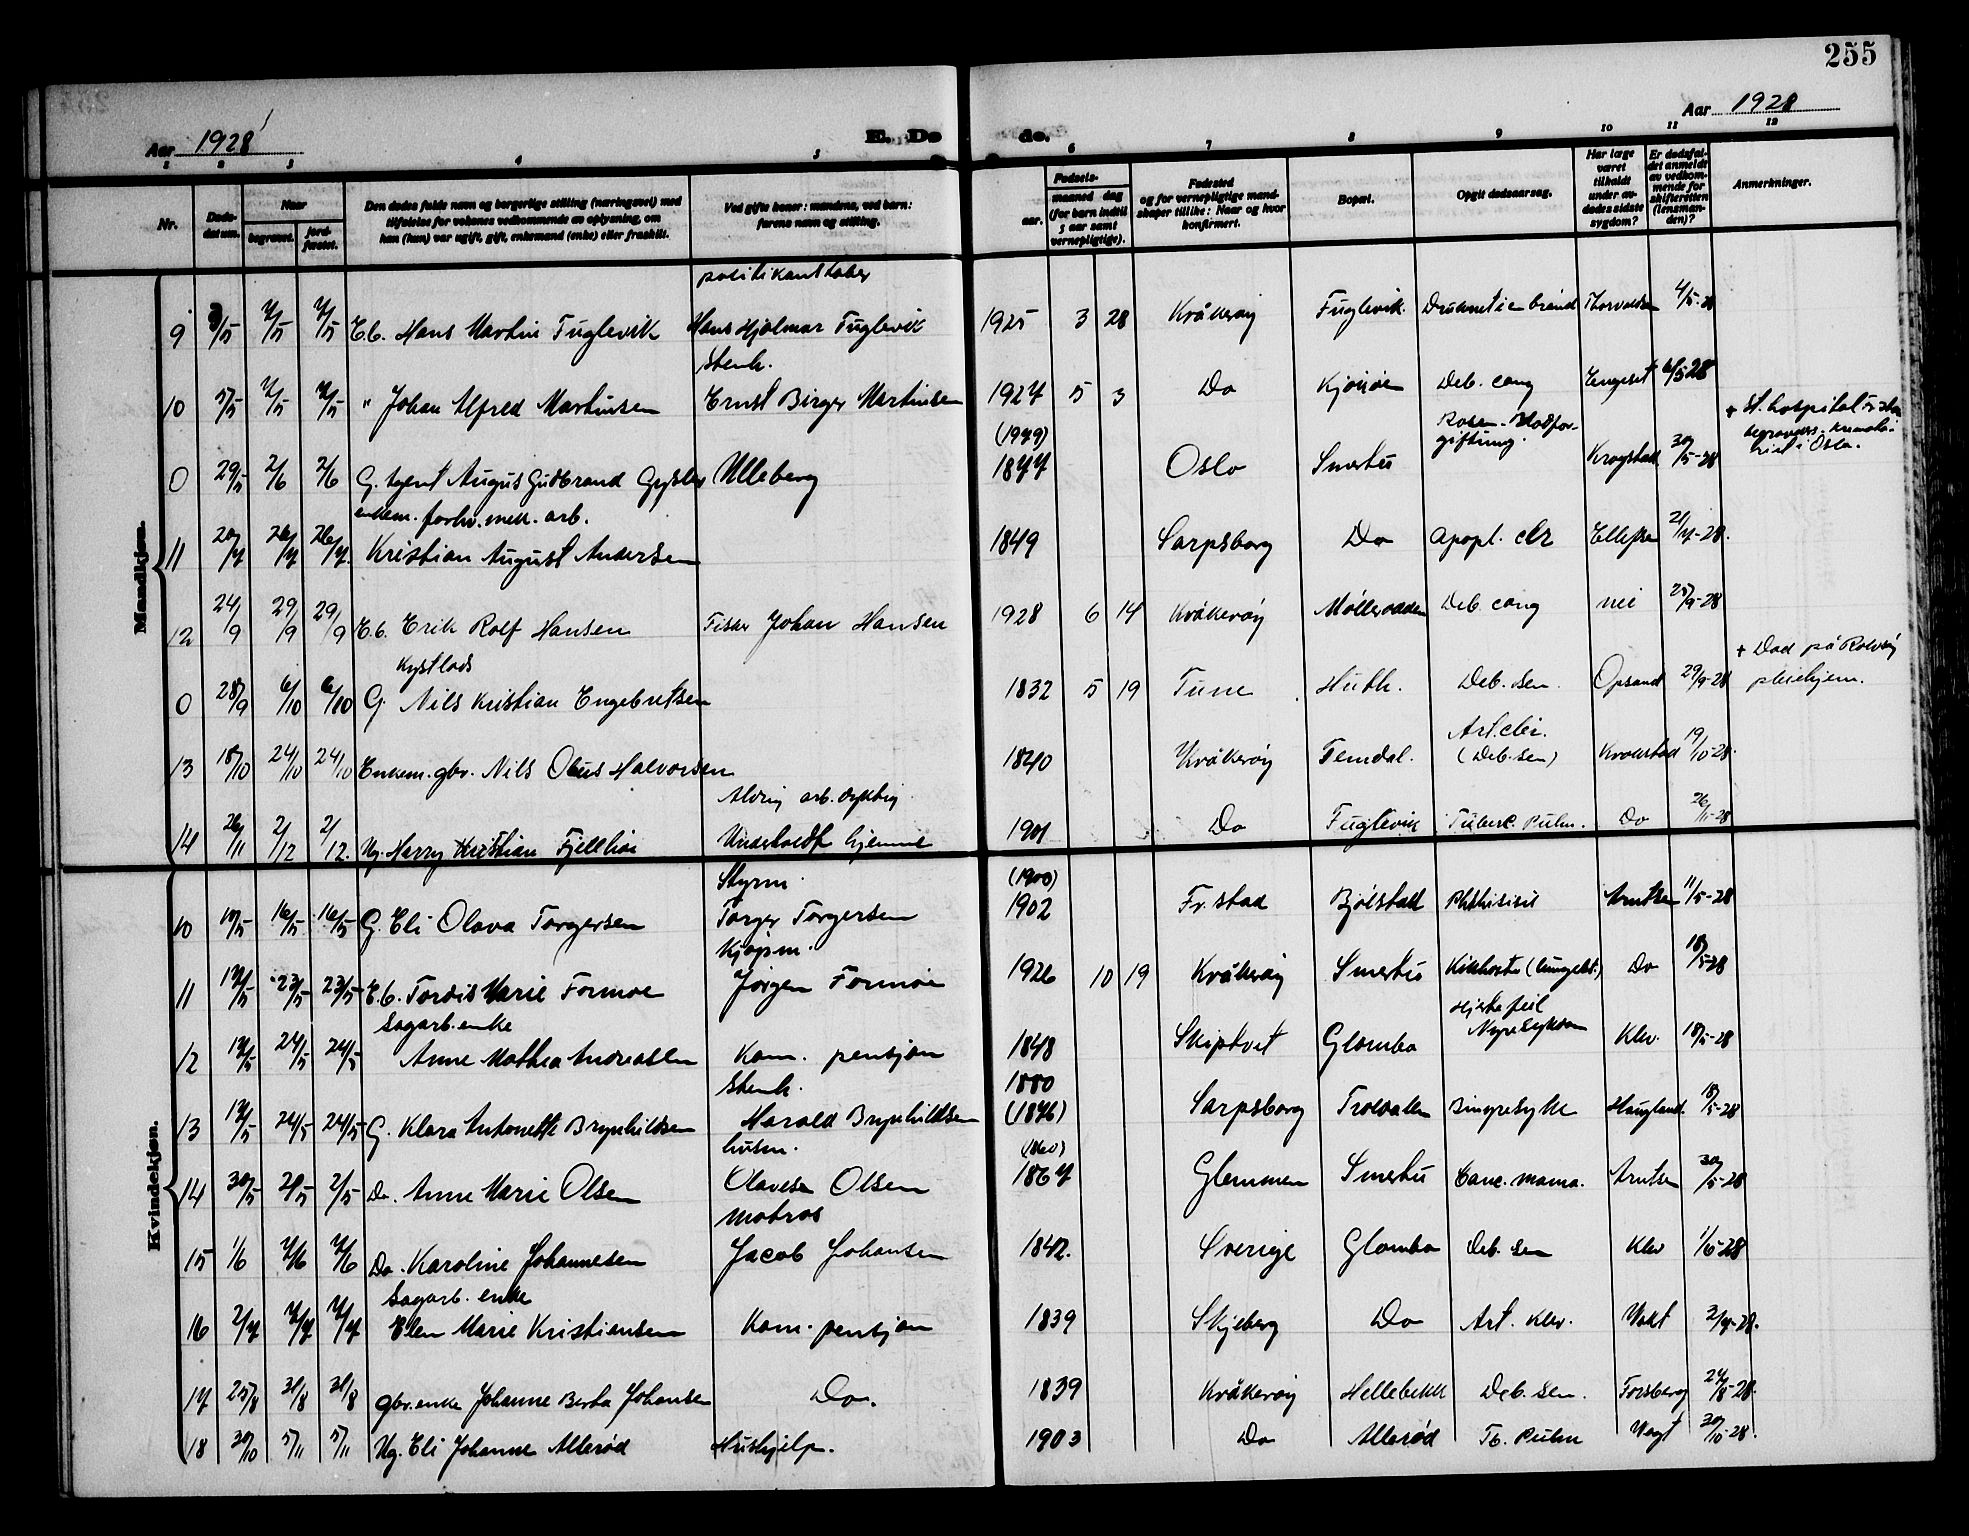 255
Aar 1928
E. Dø
de.
Aar 1928
1 2 3 4 5 6 7 8 9 10 11 12
Nr.
Døds-datum.
Naar
begravet.
jord-fæstet.
Den dødes fulde navn og borgerlige stilling (næringsvei) med
tilføielse for voksnes vedkommende av oplysning, om
han (hun) var ugift, gift, enkemand (enke) eller fraskilt.
Ved gifte koner: mandens, ved barn:
farens navn og stilling.
Fødsels-
aar.
maaned dag
(for barn indtil
5 aar samt
vernepligtige).
Fødested
og for vernepligtige mand-
skaper tillike: Naar og hvor
konfirmert.
Bopæl.
Opgit dødsaarsag.
Har læge
været
tilkaldt
under av-
dødes sidste
sygdom?
Er dødsfal-
det anmeldt
av vedkom-
mende for
skifteretten
(lensman-
den)?
Anmerkninger.
Mandkjøn.
9 3/5 7/5 7/5 E.b. Hans Martin Fuglevik Hans Hjalmar Fuglevik 1925 3 28 Kråkerøy Fuglevik. Druknet i en brønd Thorvaldsen 4/5-28
stenh.
10 5/5 7/5 7/5 " Johan Alfred Martinsen Ernst Birger Martinsen 1927 5 3 Do Kjønøe Deb. cong Engeset 6/5 28
(1979)
Rosen-Blodfor-
giftning.
+ St. hospital Fr.stad
begravds. kremato-
riet i Oslo.
0 29/5 2/6 2/6 G. Agent August Gudbrand Gysler Ulleberg 1877 Oslo Smertu Krogstad 30/5-28
enkem. forhv. mek. arb.
11 20/7 26/7 26/7. Kristian August Andersen 1849 Sarpsborg Do Apopl. cbr Ellefsen 21/7-28.
12 24/9 29/9 29/9 E.b. Erik Rolf Hansen Fisker Johan Hansen 1928 6 14 Kråkerøy Møllerodden Deb. cong nei 25/9-28
kystlods
0 28/9 6/10 6/10 G. Nils Kristian Engebretsen 1832 5 19 Tune Huth. Deb. sen. Opsand 29/9-28
+ Død på Rolvsøy
pleiehjem.
Art. cler.
13 18/10 24/10 24/10 Enkem. gbr. Nils Olaus Halvorsen 1840 Kråkerøy Femdal. (Deb. sen) Krokstad 19/10-28.
Aldrig arb. dyktig
14 26/11 2/12 2/12. Ug. Harry Kristian Fjellhøi Underholdt hjemme 1901 Do Fuglevik Tuberc. Pulm. Do 26/11-28
Kvindekjøn.
Styrm. (1900)
10 10/5 16/5 16/5 G. Eli Olava Torgersen Torger Torgersen 1902 Fr.stad Bjølstad Phthisisis Arntsen 11/5-28
Kjøpm.
11 17/5 23/5 23/5 E.b. Tordis Marie Formoe Jørgen Formoe 1926 10 19 Kråkerøy Smertu Kikhoste (lungebet.) Do 18/5-28
Sagarb. enke
Hjertefeil
12 17/5 24/5 24/5 Anne Mathea Andreassen Kom. pensjon 1848 Skiptvet Glombo Nyresykdom Klev. 18/5-28
stenh. 1880
13 17/5 24/5 24/5 G. Klara Antonette Brynhildsen Harald Brynhildsen (1876) Sarpsborg Trolldalen Binyresyke Haugland. 18/5-28
husm. (1860)
14 30/5 2/5 2/5 Do. Anne Marie Olsen Olavesen Olsen 1867 Glemmen Smertu Canc. mama. Arntsen 30/5-28
matros
15 1/6 7/6 7/6 Do. Karoline Johannesen Jacob Johansen 1842. Sverige Glombo Deb. sen Klev 1/6-28
Sagarb. enke
16 2/7 7/7 7/7 Elen Marie Kristiansen Kom. pensjon 1839 Skjeberg Do Art. Klev. Vokt 3/7-28.
17 25/8 31/8 31/8 gbr. enke Johanne Berta Johansen Do. 1839 Kråkerøy Hellebekk Deb. sen. Forsberg 27/8-28.
18 30/10 5/11 5/11 Ug. Eli Johanne Allerød Hushjelp. 1903 Do Allerød Tb. Pulm Vogt 30/10-28.